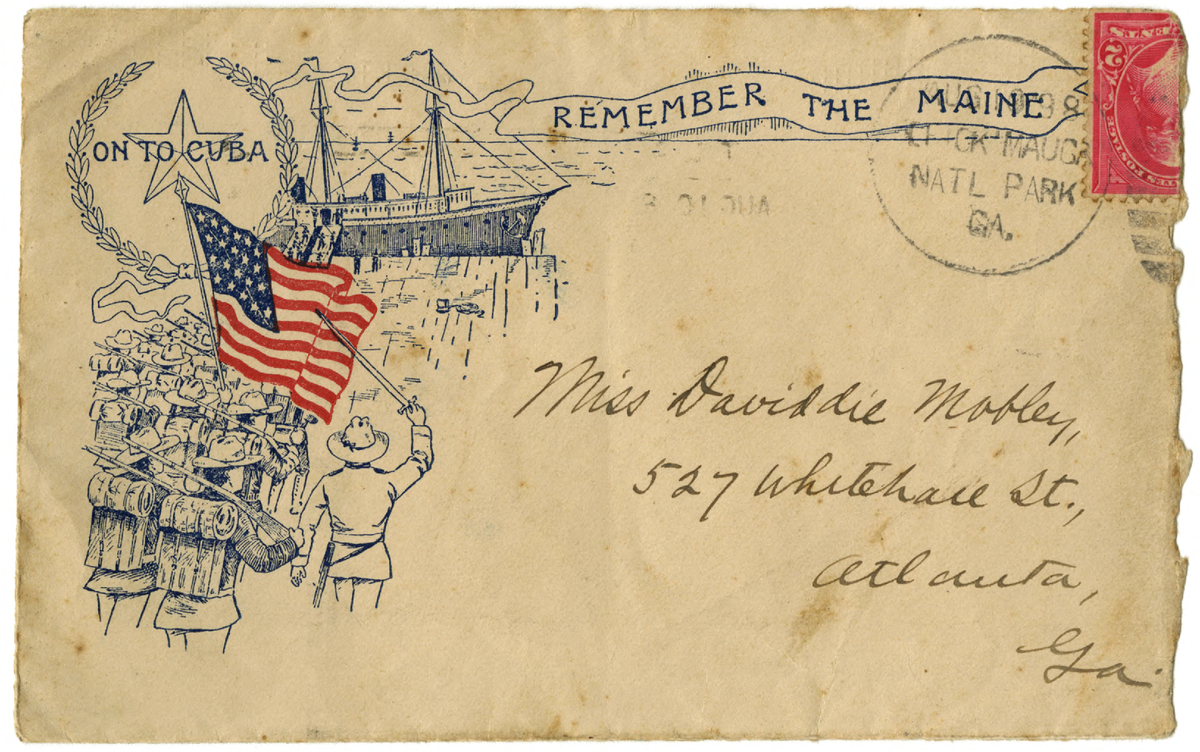 ON TO CUBA
REMEMBER THE MAINE
98
CHICKAMAUGA
NATL PARK
GA.
2
Miss Daviddie Mobley,
527 Whitehall St.,
Atlanta,
Ga.